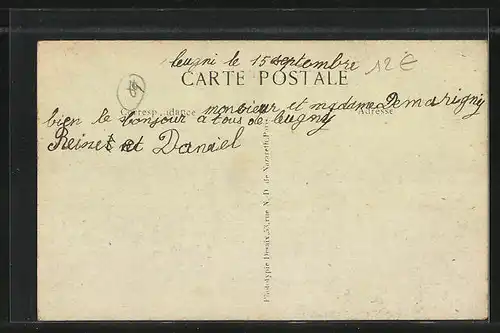 leugni le 15 septembre
12€
CARTE POSTALE
Correspondance
Adresse
monsieur et madame Demarigny
bien le bonjour a tous de leugny
Reinet et Daniel
Phototypie Desaix, 53, rue N. D. de Nazareth, Paris